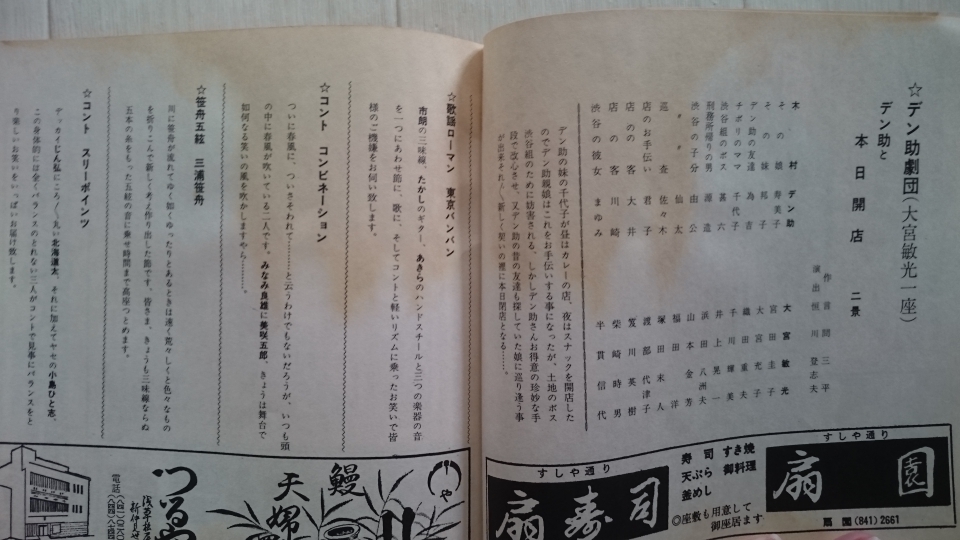 ☆デン助劇団(大宮敏光一座)
デン助と
本日開店 二景
作 言問三平
演出 恒川登志夫
木村デン助 大宮敏光
その娘 寿美子
その妹 邦子
デン助の友達 為吉
チボリのママ 千代子
渋谷組のボス 甚六
刑務所帰りの男 源造
渋谷の子分 由公
〃 仙太
巡査 佐々木
店のお手伝い 君子
店の客 大井
店の客 川崎
渋谷の彼女 まゆみ
デン助の妹の千代子が昼はカレーの店、夜はスナックを開店した
のでデン助親娘はこれをお手伝いする事になったが、土地のボス
渋谷組のために妨害される、しかしデン助さんお得意の珍妙な手
段で改心させ、又デン助の昔の友達も探していた娘に巡り逢う事
が出来それ〲新しく契いの裡に本日閉店となる……。
☆歌謡ローマン 東京バンバン
市朗の三味線、たかしのギター、あきらのハンドスチールと三つの楽器の音
を一つにあわせ節に、歌に、そしてコントと軽いリズムに乗ったお笑いで皆
様のご機嫌をお伺い致します。
☆コント コンビネーション
ついに春風に、ついさそわれで……と云うわけでもないだろうが、いつも頭
の中に春風が吹いている二人です。みなみ良雄に美咲五郎、きょうは舞台で
如何なる笑いの風を吹かしますやら……。
☆笹舟五絃 三浦笹舟
河に笹舟が流れてゆく如くゆったりとあるときは速く荒々しくと色々なもの
を折りこんで新しく考え作り出した節です。皆さま、きょうも三味線ならぬ
五本の糸をもった五絃の音に乗せ時間まで高座つとめます。
☆コント スリーポインツ
デッカイじん弘にころ〱丸い北海道太、それに加えてヤセの小島ひと志、
この身体的には全くバランスのとれない三人がコントで見事にバランスをと
り楽しいお笑いをいっぱいお届け致します。
すしや通り
扇園
扇園(841)2661
寿司 すき焼
天ぷら 御料理
釜めし
◎座敷も用意して
御座居ます
すしや通り
扇寿司
うや
鰻
天婦
つるや
浅草
新仲見世
電話